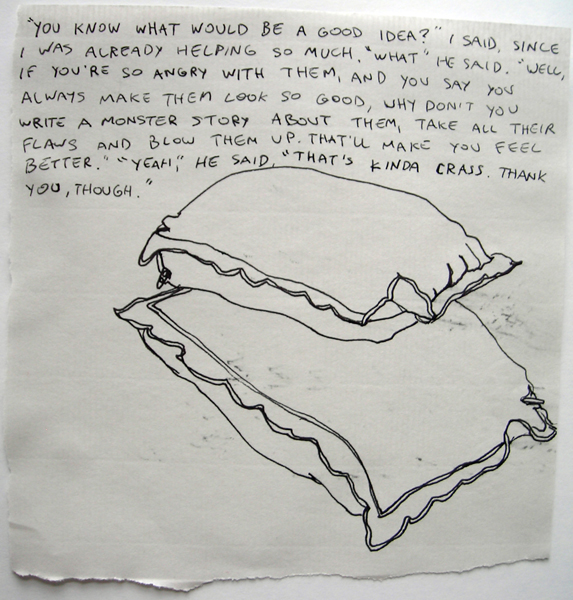 "YOU KNOW WHAT WOULD BE A GOOD IDEA?" I SAID, SINCE
I WAS ALREADY HELPING SO MUCH. "WHAT" HE SAID. "WELL,
IF YOU'RE SO ANGRY WITH THEM, AND YOU SAY YOU
ALWAYS MAKE THEM LOOK SO GOOD, WHY DON'T YOU
WRITE A MONSTER STORY ABOUT THEM, TAKE ALL THEIR
FLAWS AND BLOW THEM UP. THAT'LL MAKE YOU FEEL
BETTER." "YEAH," HE SAID, "THAT'S KINDA CRASS. THANK
YOU, THOUGH."